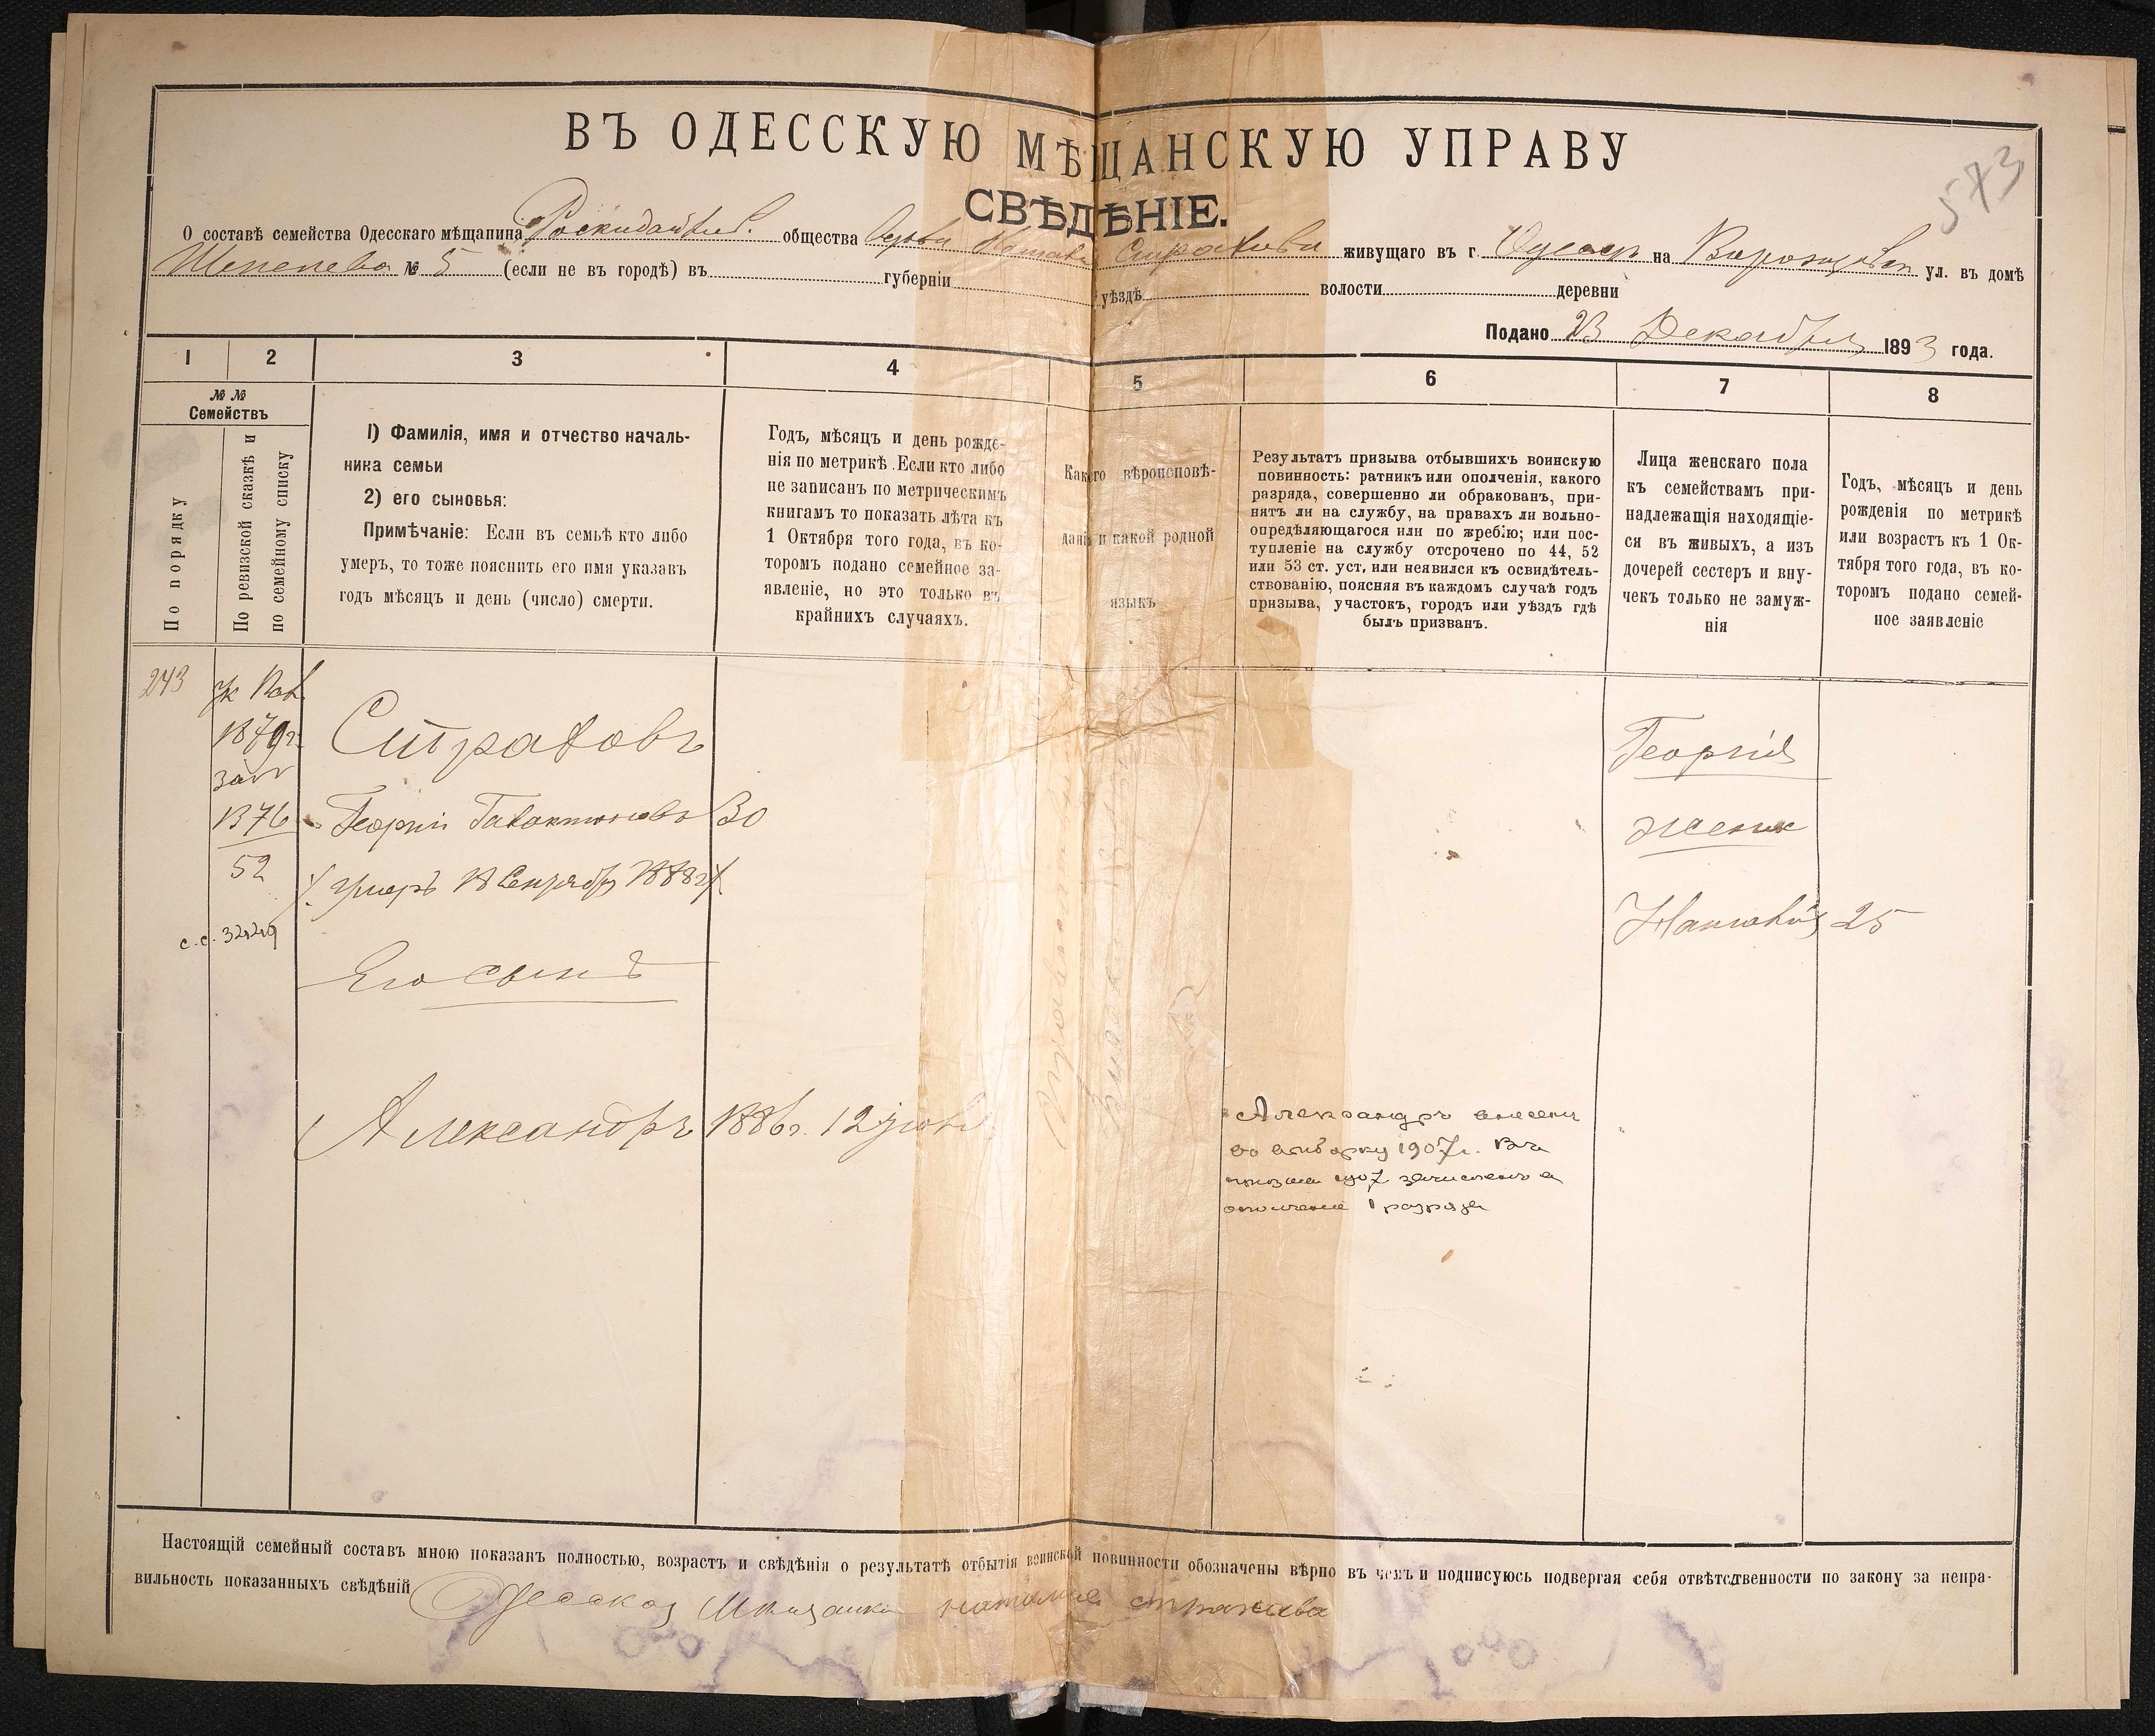 573
ВЪ ОДЕССКУЮ МѢЩАНСКУЮ УПРАВУ
СВѢДѢНІЕ.
О составѣ семейства Одесскаго мѣщанина общества Вдовы Страховы живущаго въ г. Одессѣ на ул. въ домѣ
Шепелева № 5 (если не въ городѣ) въ губерніи уѣздѣ волости деревни
Подано 23 Декабря 1893 года.
1 2 3 4 5 6 7 8
№ №
Семействъ
По порядку
По ревизской сказкѣ и
по семейному списку
1) Фамилія, имя и отчество началь-
ника семьи
2) его сыновья:
Примѣчаніе: Если въ семьѣ кто либо
умеръ, то тоже пояснить его имя указавъ
годъ мѣсяцъ и день (число) смерти.
Годъ, мѣсяцъ и день рожде-
нія по метрикѣ. Если кто либо
не записанъ по метрическимъ
книгамъ то показать лѣта къ
1 Октября того года, въ ко-
торомъ подано семейное за-
явленіе, но это только въ
крайнихъ случаяхъ.
Какого вѣроисповѣ-
данія и какой родной
языкъ
Результатъ призыва отбывшихъ воинскую
повинность: ратникъ или ополченія, какого
разряда, совершенно ли обракованъ, при-
нятъ ли на службу, на правахъ ли вольно-
опредѣляющагося или по жребію; или пос-
тупленіе на службу отсрочено по 44, 52
или 53 ст. уст, или неявился къ освидѣтель-
ствованію, поясняя въ каждомъ случаѣ годъ
призыва, участокъ, городъ или уѣздъ гдѣ
былъ призванъ.
Лица женскаго пола
къ семействамъ при-
надлежащія находящіе-
ся въ живыхъ, а изъ
дочерей сестеръ и вну-
чекъ только не замуж-
нія
Годъ, мѣсяцъ и день
рожденія по метрикѣ
или возрастъ къ 1 Ок-
тября того года, въ ко-
торомъ подано семей-
ное заявленіе
243
1879 г.
1876
52
с.с. 32229
Страховъ
Георгій Галактіоновъ 30
умеръ 18 Сентября 1888 г.
Его сынъ
Александръ 1886 г. 12 іюня
Александръ внесенъ
въ выборку 1907 г. Въ
призывъ 1907 зачисленъ в
ополченіе 1 разряда
Георгія
жена
Наталія 25
Настоящій семейный составъ мною показанъ полностью, возрастъ и свѣдѣнія о результатѣ отбытія воинской повинности обозначены вѣрно въ чемъ и подписуюсь подвергая себя отвѣтственности по закону за непра-
вильность показанныхъ свѣдѣній Одеская Мещанка наталия страхова